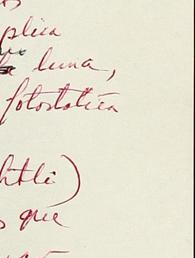 plica
la luna,
fotostatica
htli)
que